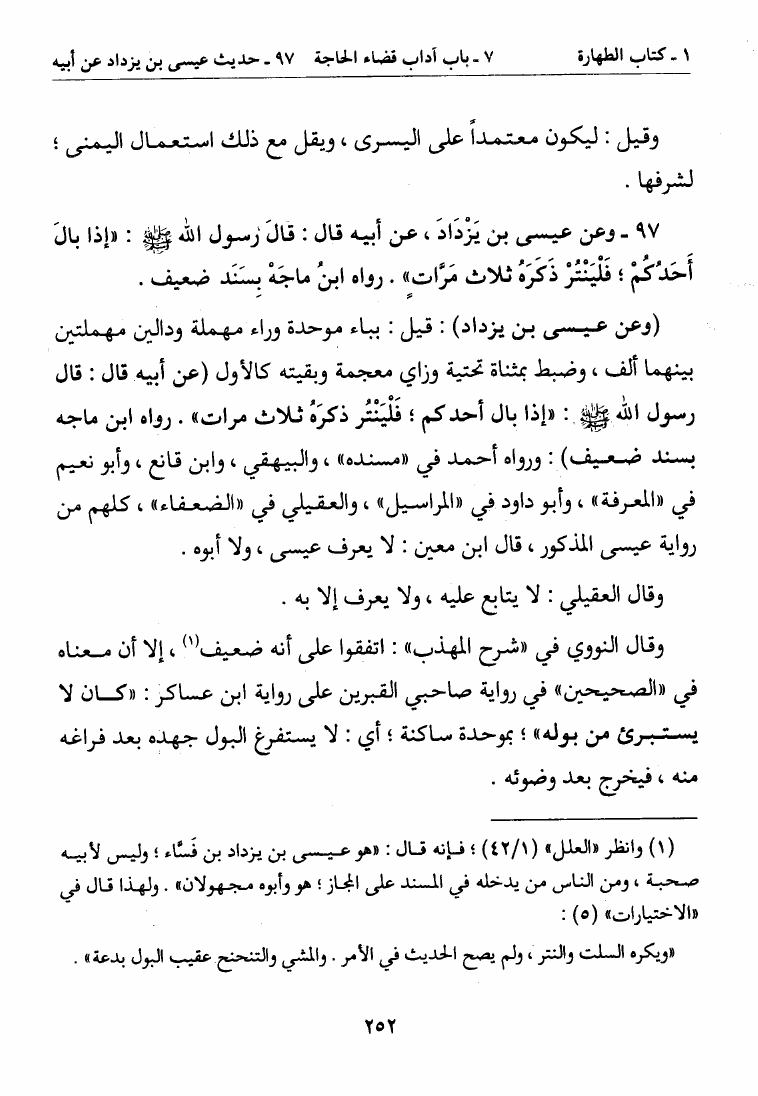 ١ ـ كتاب الطهارة ٧ ـ باب آداب قضاء الحاجة ٩٧ ـ حديث عيسى بن يزداد عن أبيه
وقيل : ليكون معتمداً على اليسرى ، ويقل مع ذلك استعمال اليمنى ؛
لشرفها .
٩٧ ـ وعن عيسى بن يَزْدَادَ ، عن أبيه قال : قالَ رسول الله ﷺ : «إذا بالَ
أَحَدُكُمْ ؛ فَلْيَنْتُرْ ذَكَرَهُ ثلاث مَرَّاتٍ» . رواه ابنُ ماجَهْ بِسَنَد ضعيف .
(وعن عيسى بن يزداد) : قيل : بباء موحدة وراء مهملة ودالين مهملتين
بينهما ألف ، وضبط بمثناة تحتية وزاي معجمة وبقيته كالأول (عن أبيه قال : قال
رسول الله ﷺ : «إذا بال أحدكم ؛ فَلْيَنْتُر ذكرَهُ ثلاث مرات» . رواه ابن ماجه
بسند ضعيف) : ورواه أحمد في «مسنده» ، والبيهقي ، وابن قانع ، وأبو نعيم
في «المعرفة» ، وأبو داود في «المراسيل» ، والعقيلي في «الضعفاء» ، كلهم من
رواية عيسى المذكور ، قال ابن معين : لا يعرف عيسى ، ولا أبوه .
وقال العقيلي : لا يتابع عليه ، ولا يعرف إلا به .
وقال النووي في «شرح المهذب» : اتفقوا على أنه ضعيف(١) ، إلا أن معناه
في «الصحيحين» في رواية صاحبي القبرين على رواية ابن عساكر : «كان لا
يستبرئ من بوله» ؛ بموحدة ساكنة ؛ أي : لا يستفرغ البول جهده بعد فراغه
منه ، فيخرج بعد وضوئه .
(١) وانظر «العلل» (٤٢/١) ؛ فإنه قال : «هو عيسى بن يزداد بن فَسَّاء ؛ وليس لأبيه
صحبة ، ومن الناس من يدخله في المسند على المجاز ؛ هو وأبوه مجهولان» . ولهذا قال في
«الاختيارات» (٥) :
«ويكره السلت والنتر ، ولم يصح الحديث في الأمر . والمشي والتنحنح عقيب البول بدعة» .
٢٥٢